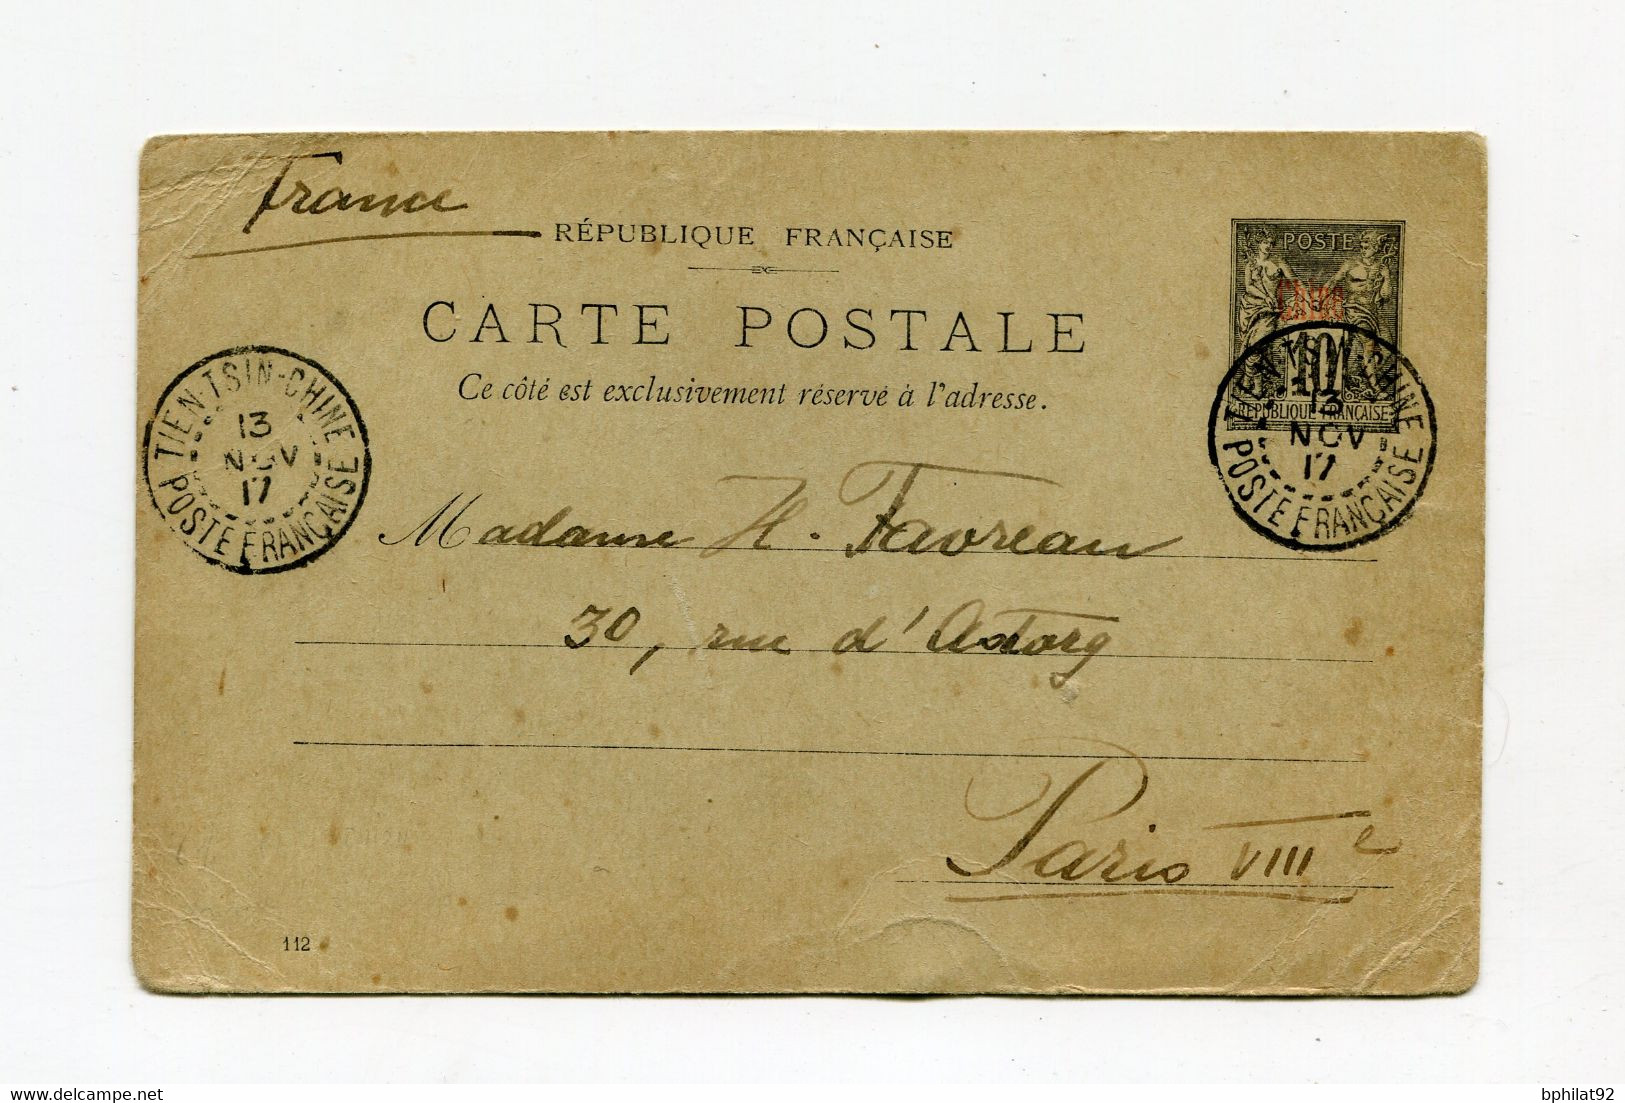 France
RÉPUBLIQUE FRANÇAISE
CARTE POSTALE
Ce côté est exclusivement réservé à l'adresse.
POSTE
Chine
10
RÉPUBLIQUE FRANÇAISE
TIEN-TSIN-CHINE
13
NOV
17
POSTE FRANÇAISE
TIEN-TSIN-CHINE
13
NOV
17
POSTE FRANÇAISE
Madame H. Favreau
30, rue d'Astorg
Paris VIIIe
112
delcampe.net
bphilat92